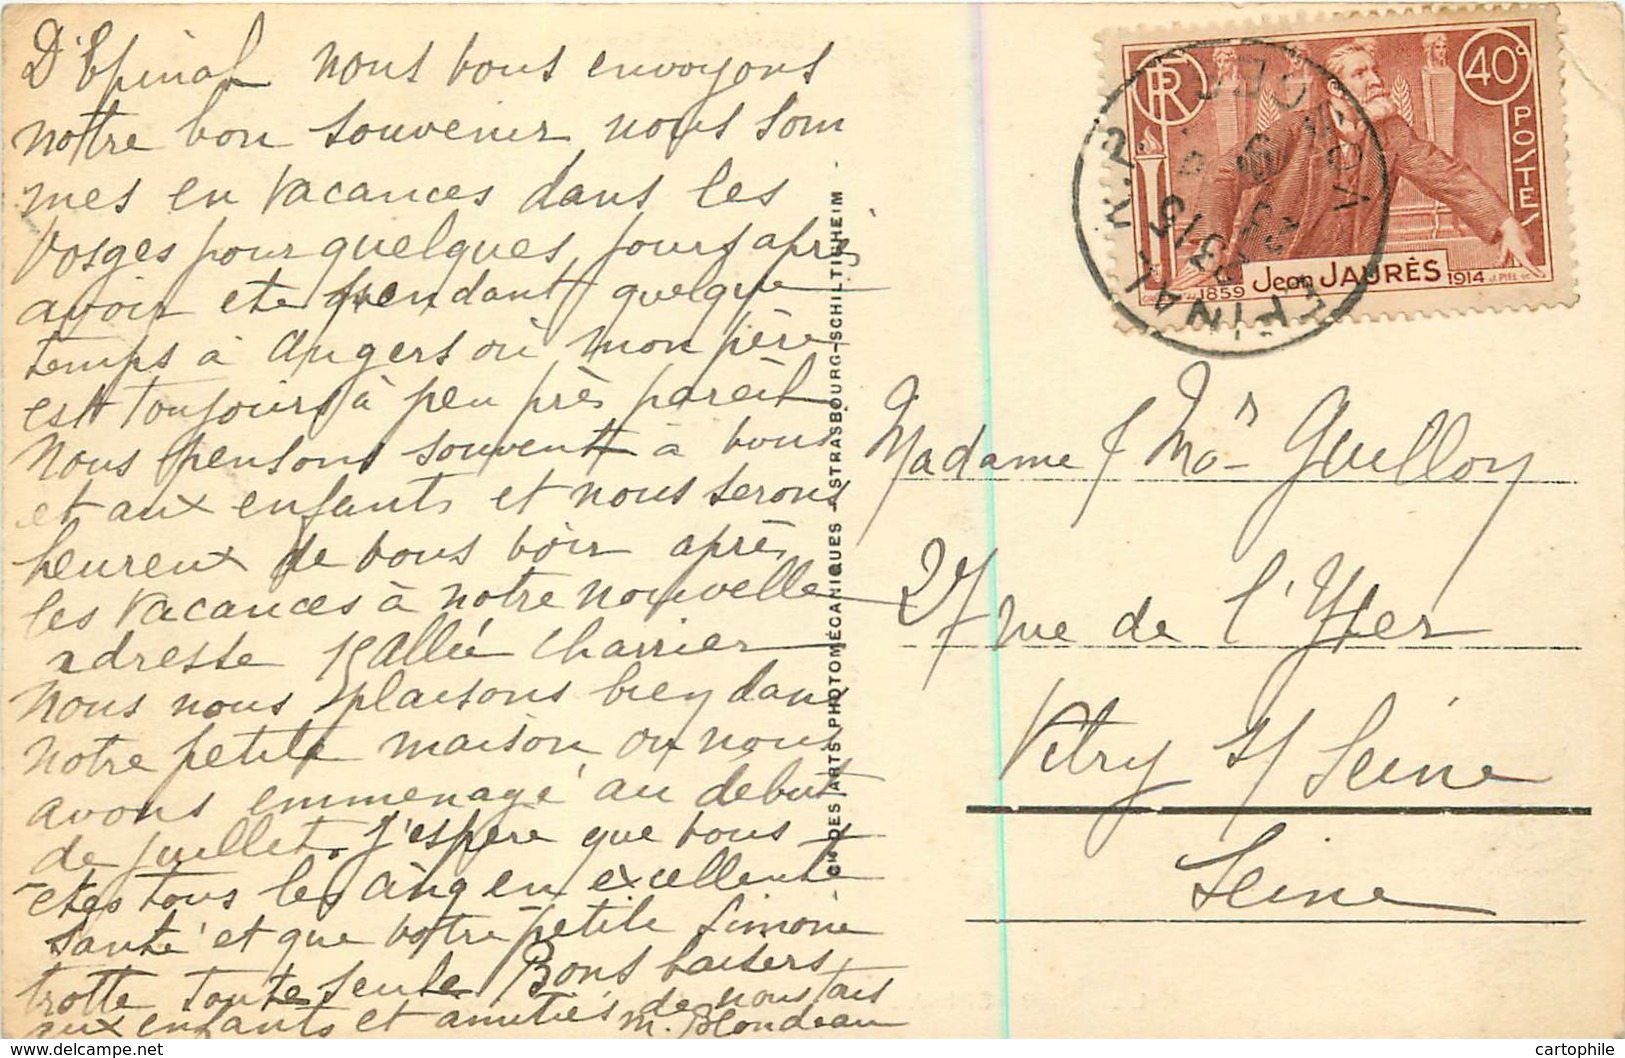 D'Epinal nous vous envoyons
notre bon souvenir nous som
mes en vacances dans les
Vosges pour quelques jours après
avoir ete pendant quelque
temps à Angers où mon père
est toujours à peu près pareil
Nous pensons souvent à vous
et aux enfants et nous serons
heureux de vous voir après
les vacances à notre nouvelle
adresse allée Charrier
Nous nous plaisons bien dans
notre petite maison ou nous
avons emmenagé au debut
de juillet. J'espere que vous
êtes tous les cinq en excellente
santé et que votre petite Simone
trotte toute seule Bons baisers
de nous tous
aux enfants et amitiés M. Blondeau
CIE DES ARTS PHOTOMÉCANIQUES - STRASBOURG-SCHILTIGHEIM -
RF
40c
POSTES
1859 Jean JAURÈS 1914
EPINAL R.P.
VOSGES
Madame & Mor Guelloy
27 rue de l'Yser
Vitry s/ Seine
Seine
cartophile